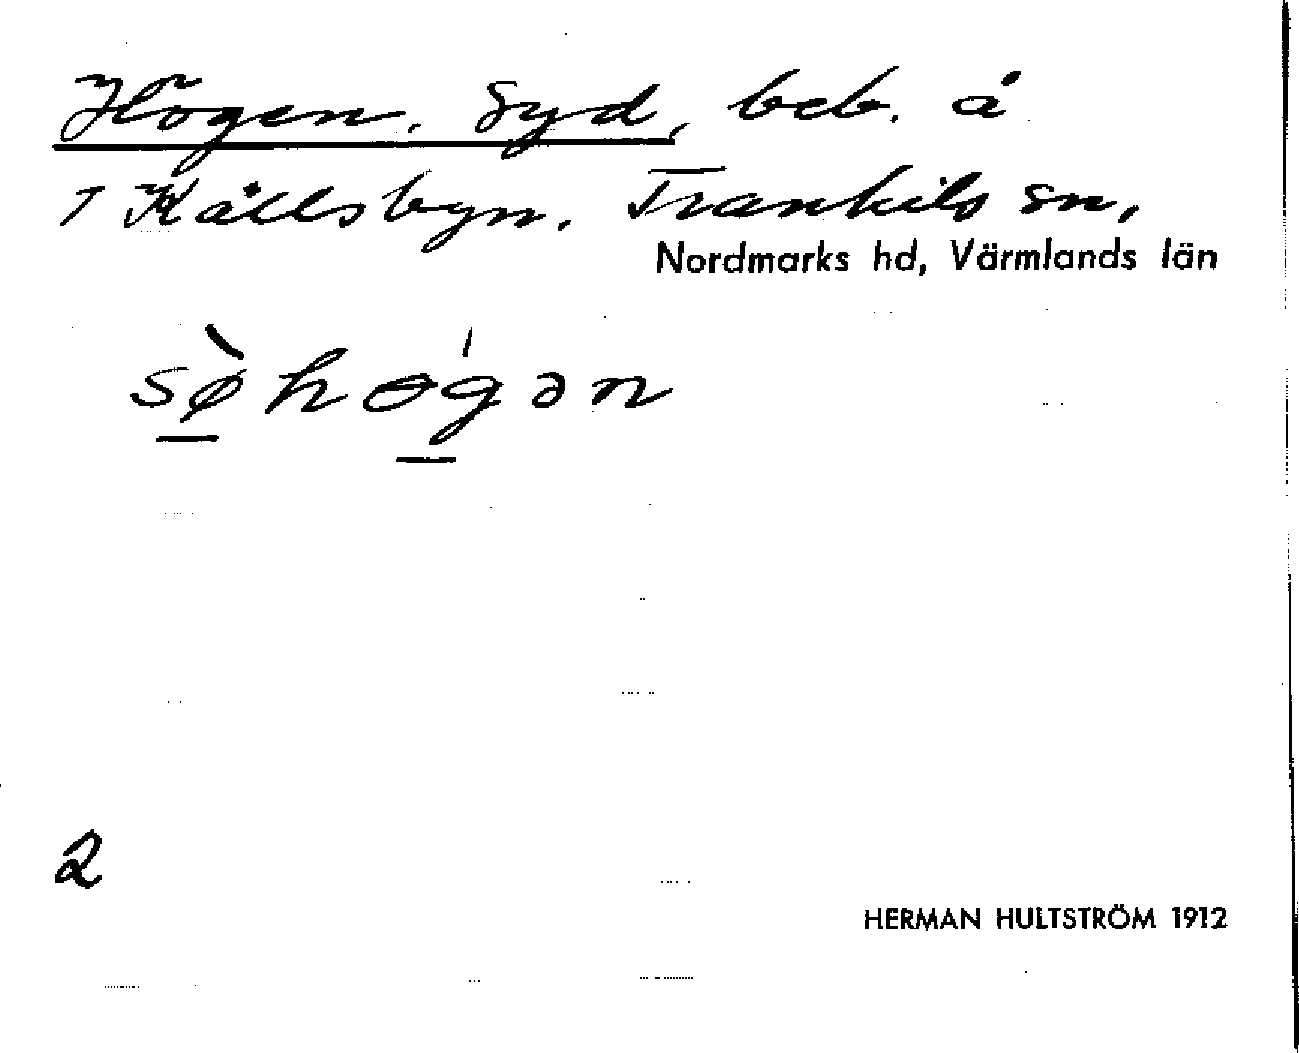 Högen, Syd, beb. å
1 Källsbyn, Trankils sn,
Nordmarks hd, Värmlands län
sø̀høgən
2
HERMAN HULTSTRÖM 1912